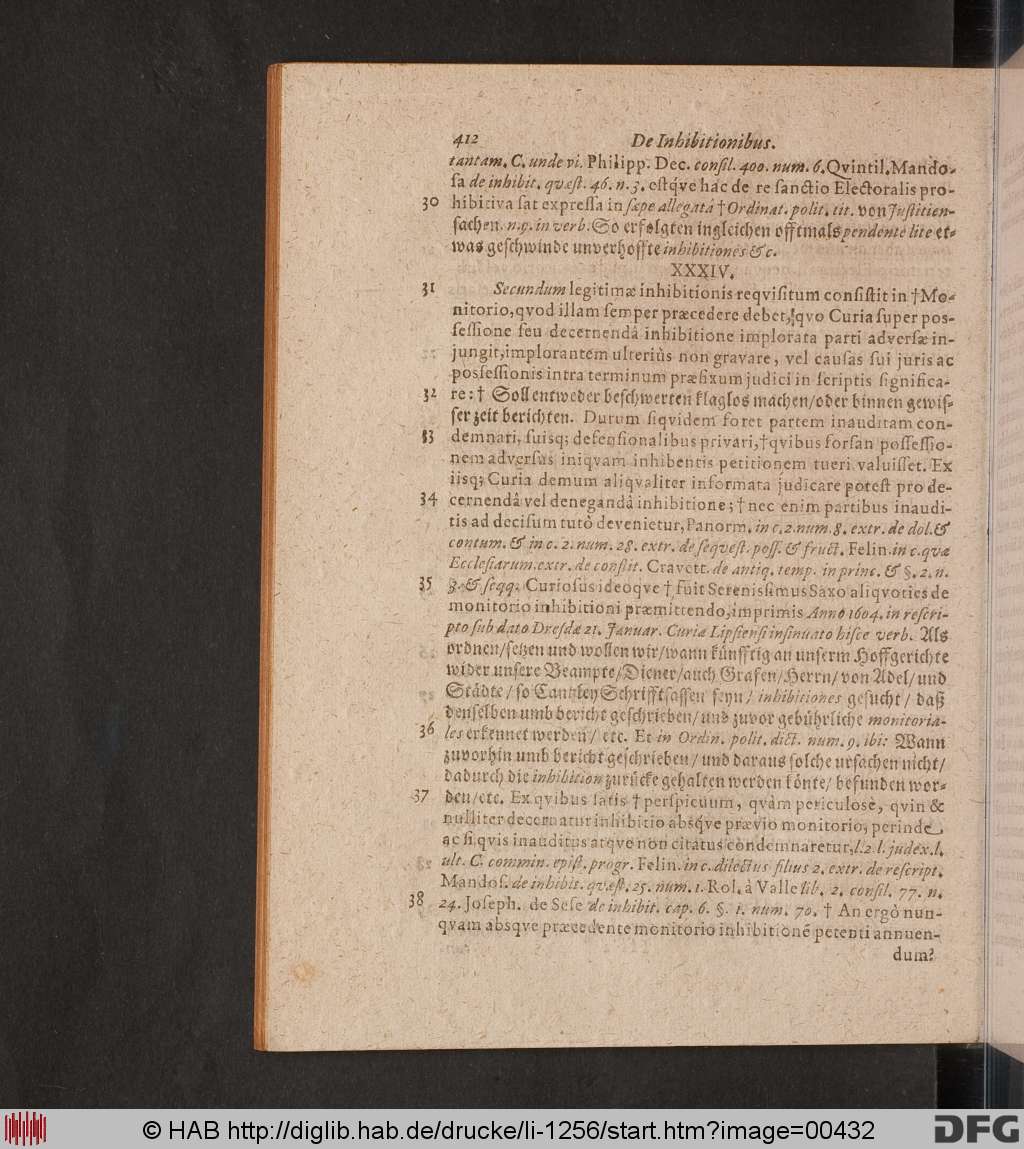 412 De Inhibitionibus.
tantam. C. unde vi. Philipp. Dec. consil. 400. num. 6. Qvintil. Mando-
sa de inhibit. qvæst. 46. n. 3. estqve hac de re sanctio Electoralis pro-
30 hibitiva sat expressa in sæpe allegatâ † Ordinat. polit. tit. von Justitien-
sachen. n. 9. in verb. So erfolgten ingleichen offtmals pendente lite et-
was geschwinde unverhoffte inhibitiones &c.
XXXIV.
31 Secundum legitimæ inhibitionis reqvisitum consistit in † Mo-
nitorio, qvod illam semper præcedere debet, qvo Curia super pos-
sessione seu decernendâ inhibitione implorata parti adversæ in-
jungit, implorantem ulteriùs non gravare, vel causas sui juris ac
possessionis intra terminum præfixum judici in scriptis significa-
32 re: † Soll entweder beschwerten klaglos machen/oder binnen gewis-
ser zeit berichten. Durum siqvidem foret partem inauditam con-
33 demnari, suisq; defensionalibus privari, † qvibus forsan possessio-
nem adversus iniqvam inhibentis petitionem tueri valuisset. Ex
iisq; Curia demum aliqvaliter informata judicare potest pro de-
34 cernendâ vel denegandâ inhibitione; † nec enim partibus inaudi-
tis ad decisum tutò devenietur, Panorm. in c. 2. num. 8. extr. de dol. &
contum. & in c. 2. num. 28. extr. de seqvest. poss. & fruct. Felin. in c. qvæ
Ecclesiarum. extr. de constit. Cravett. de antiq. temp. in princ. & §. 2. n.
35 3. & seqq. Curiosus ideoqve † fuit Serenissimus Saxo aliqvoties de
monitorio inhibitioni præmittendo, imprimis Anno 1604. in rescri-
pto sub dato Dresdæ 21. Januar. Curiæ Lipsiensi insinuato hisce verb. Als
ordnen/setzen und wollen wir/wann künfftig an unserm Hoffgerichte
wider unsere Beampte/Diener/auch Grafen/Herrn/von Adel/und
Städte/so Cantzley Schrifftsassen seyn/ inhibitiones gesucht/ daß
denselben umb bericht geschrieben/und zuvor gebührliche monitoria-
36 les erkennet werden/ etc. Et in Ordin. polit. dict. num. 9. ibi: Wann
zuvorhin umb bericht geschrieben/ und daraus solche ursachen nicht/
dadurch die inhibition zurücke gehalten werden könte/ befunden wor-
37 den/etc. Ex qvibus satis † perspicuum, qvàm periculosè, qvin &
nulliter decernatur inhibitio absqve prævio monitorio, perinde
ac si qvis inauditus atqve non citatus condemnaretur, l. 2. l. judex. l.
ult. C. commin. epist. progr. Felin. in c. dilectus filius 2. extr. de rescript.
Mandos. de inhibit. qvæst. 25. num. 1. Rol. à Valle lib. 2. consil. 77. n.
38 24. Joseph. de Sese de inhibit. cap. 6. §. 1. num. 70. † An ergò nun-
qvam absqve præcedente monitorio inhibitionẽ petenti annuen-
dum?
© HAB http://diglib.hab.de/drucke/li-1256/start.htm?image=00432
DFG